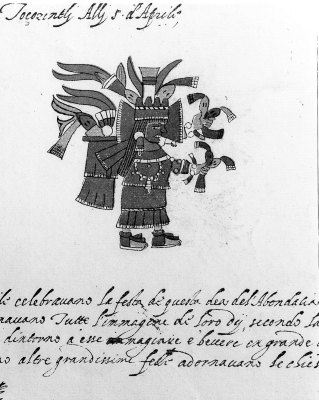 Toçozintli Alli 5 d'Aprile
celebravano la festa di questa dea del'Abondalia
navano Tutte l'immagine de loro dij, secondo la
dintorno a esse magiare e bevere in grande
altre grandissime feste adornavano le chiese